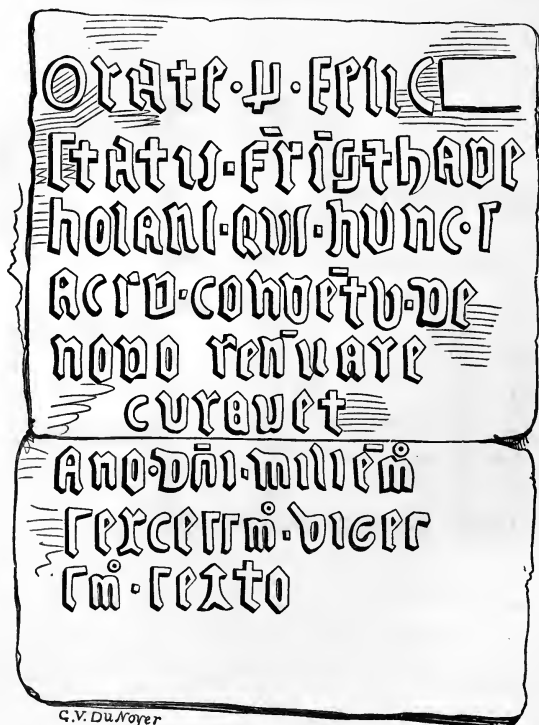 Orate · p · Felic
itatis · Fr̄is thade
holani · qui · hunc · s
acru · convētu · de
novo ren̄uare
curauet
Ano · dn̄i · millēm̊
sexcessm̊ · viges
sm̊ · sexto
G.V. Du Noyer